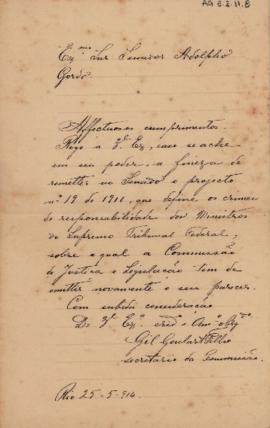 AG 6.2.11.8
Exmo Snr Senador Adolpho
Gordo.
Affectuosos cumprimentos.
Rogo a V. Ex, caso se ache
em seu poder, a fineza de
remetter ao Senado o projecto
nº 19 de 1911, que define os crimes
de responsabilidade dos Ministros
do Supremo Tribunal Federal,
sobre o qual a Commissão
de Justiça e Legislação tem de
emittir novamente o seu parecer.
Com subida consideração
De V. Exª credº e Amº Obgº
Gil Goulart Filho
secretario da Commissão.
Rio 25-5-914.